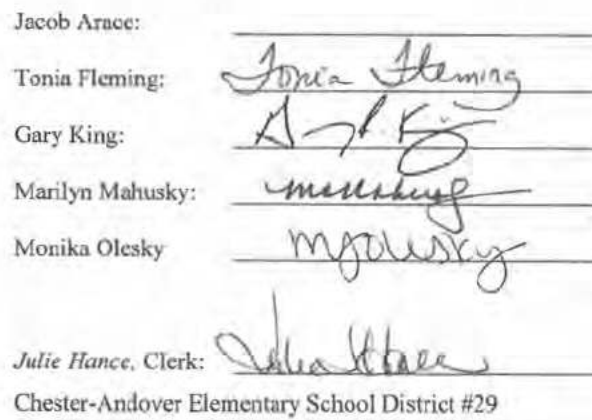 Jacob Arace:
Tonia Fleming: Tonia Fleming
Gary King:
Marilyn Mahusky:
Monika Olesky MJOlesky
Julie Hance, Clerk:
Chester-Andover Elementary School District #29